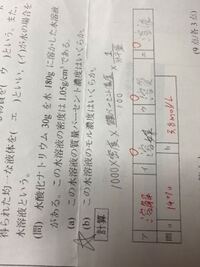 得られた均一な液体を(エ)という。また、
水溶液という。
(問) 水酸化ナトリウム30gを水180gに溶かした水溶液
がある。この水溶液の密度は1.05g/cm³である。
(a) この水溶液の質量パーセント濃度はいくらか。
(b) この水溶液のモル濃度はいくらか。
計算
1000×密度×質量パーセント濃度/100×1/
ア 溶媒
イ 溶媒
ウ 溶質
エ 溶液
問 a 14%
b 3.8mol/L
(9点/各3点)